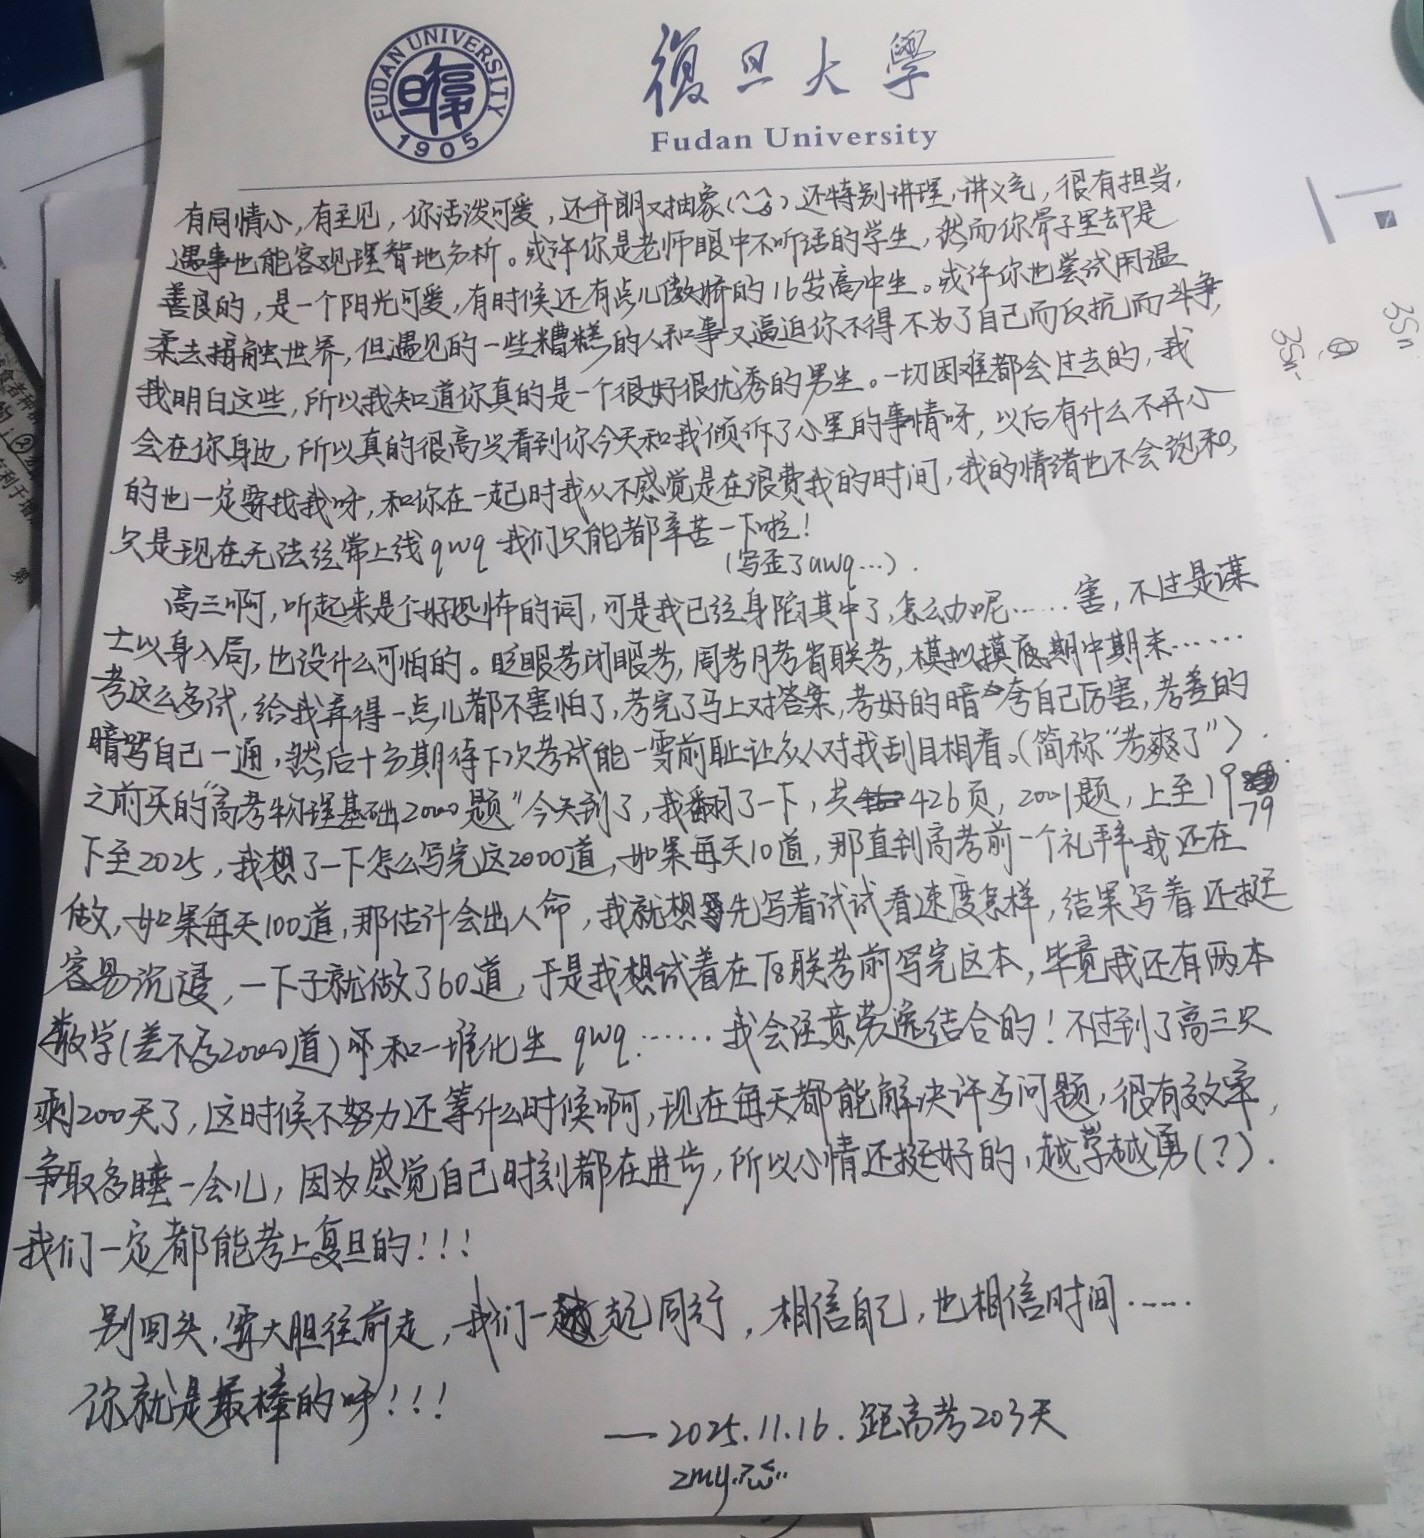 FUDAN UNIVERSITY
1905
復旦大學
Fudan University
有同情心,有主见,你活泼可爱,还开朗又抽象(^_^)还特别讲理,讲义气,很有担当,
遇事也能客观理智地分析。或许你是老师眼中不听话的学生,然而你骨子里却是
善良的,是一个阳光可爱,有时候还有点儿傲娇的16岁高冲生。或许你也尝试用温
柔去接触世界,但遇见的一些糟糕的人和事又逼迫你不得不为了自己而反抗而斗争,
我明白这些,所以我知道你真的是一个很好很优秀的男生。一切困难都会过去的,我
会在你身边,所以真的很高兴看到你今天和我倾诉了心里的事情呀,以后有什么不开心
的也一定要找我呀,和你在一起时我从不感觉是在浪费我的时间,我的情绪也不会饱和,
只是现在无法经常上线qwq 我们只能都辛苦一下啦!
(写歪了awq…).
高三啊,听起来是个好恐怖的词,可是我已经身陷其中了,怎么办呢……害,不过是谋
士以身入局,也没什么可怕的。眨眼考闭眼考,周考月考省联考,模拟摸底期中期末……
考这么多试,给我弄得一点儿都不害怕了,考完了马上对答案,考好的暗夸自己厉害,考差的
暗骂自己一通,然后十分期待下次考试能一雪前耻让众人对我刮目相看。(简称“考爽了”).
之前买的“高考物理基础2000题”今天到了,我翻了一下,共426页,2001题,上至1979
下至2025,我想了一下怎么写完这2000道,如果每天10道,那直到高考前一个礼拜我还在
做,如果每天100道,那估计会出人命,我就想先写着试试看速度怎样,结果写着还挺
容易沉浸,一下子就做了60道,于是我想试着在T8联考前写完这本,毕竟我还有两本
数学(差不多2000道)和一堆化生 qwq……我会注意劳逸结合的!不过到了高三只
剩200天了,这时候不努力还等什么时候啊,现在每天都能解决许多问题,很有效率,
争取多睡一会儿,因为感觉自己时刻都在进步,所以心情还挺好的,越学越勇(?).
我们一定都能考上复旦的!!!
别回头,要大胆往前走,我们一起同行,相信自己,也相信时间……
你就是最棒的呀!!!
—2025.11.16.距高考203天
zmy